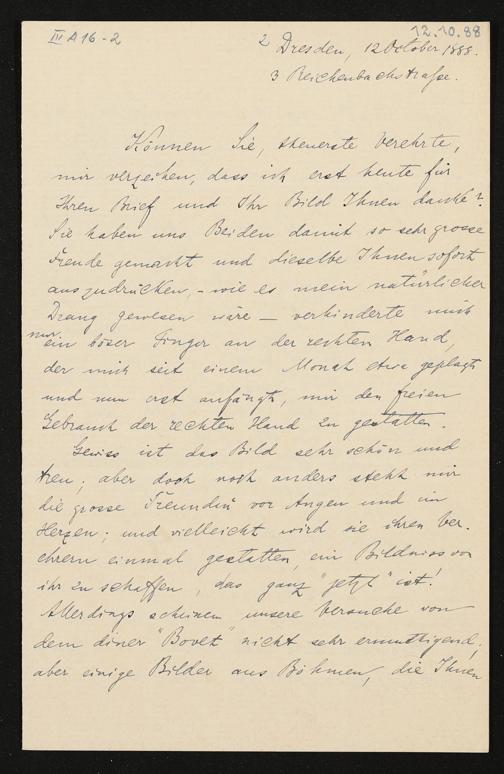 III A 16-2
12.10.88
2 Dresden, 12 October 1888.
3 Reichenbachstraße.
Können Sie, theuerste Verehrte,
mir verzeihen, dass ich erst heute für
Ihren Brief und Ihr Bild Ihnen danke?
Sie haben uns Beiden damit so sehr grosse
Freude gemacht und dieselbe Ihnen sofort
auszudrücken, - wie es mein natürlicher
Drang gewesen wäre — verhinderte mich
nur
ein böser Finger an der rechten Hand,
der mich seit einem Monat etwa geplagt
und nun erst anfängt, mir den freien
Gebrauch der rechten Hand zu gestatten.
Gewiss ist das Bild sehr schön und
treu; aber doch noch anders steht mir
die grosse Freundin vor Augen und im
Herzen; und vielleicht wird sie ihren Ver-
ehrern einmal gestatten, ein Bildniss von
ihr zu schaffen, das ganz "jetzt" ist!
Allerdings scheinen unsere Versuche von
dem "Bovet" nicht sehr ermuthigend;
aber einige Bilder aus Böhmen, die Ihnen